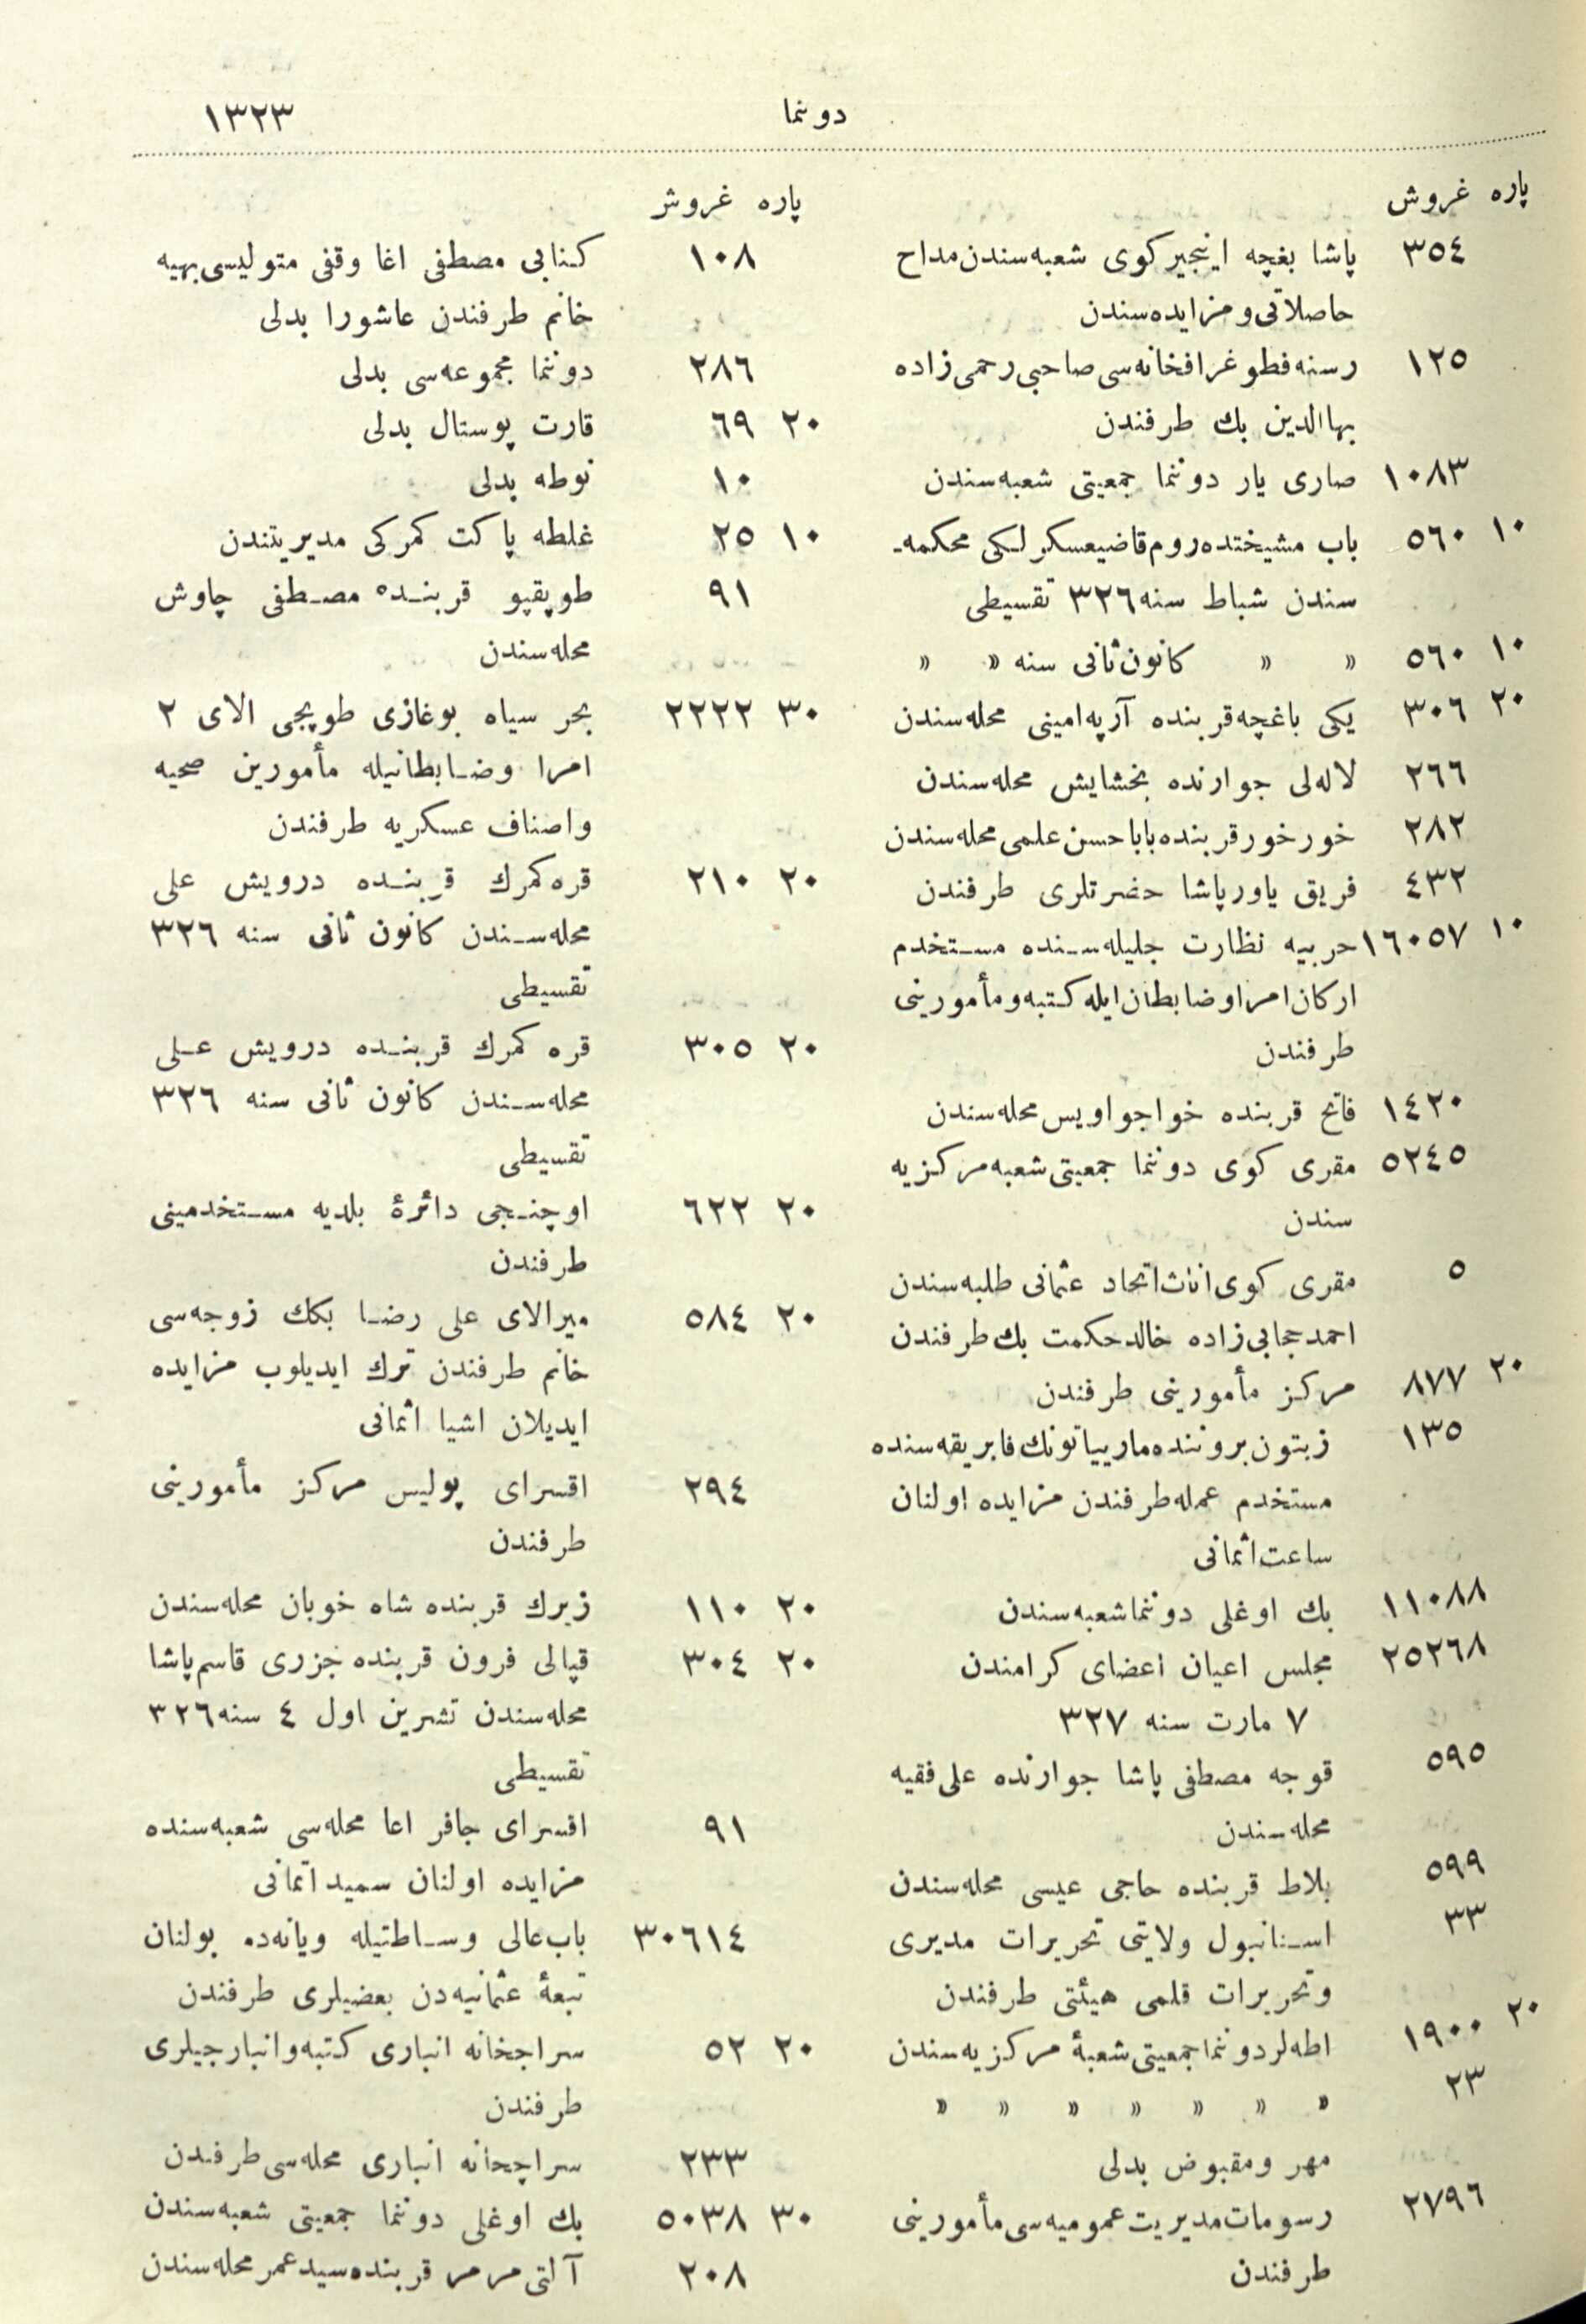 دوننما ١٣٢٣
پاره غروش
٣٥٤ پاشا بغچه اینجیر کوی شعبه سندن مداح
حاصلاتی و مزایده سندن
١٢٥ رسنه فطوغرافخانه سی صاحبی رحمی زاده
بهاالدین بك طرفندن
١٠٨٣ صاری یار دوننما جمعیتی شعبه سندن
١٠ ٥٦٠ باب مشیختده روم قاضیعسکرلکی محکمه‌ـ
سندن شباط سنه ٣٢٦ تقسیطی
١٠ ٥٦٠ » » کانون ثانی سنه » »
٢٠ ٣٠٦ یکی باغچه قربنده آرپه امینی محله سندن
٢٦٦ لاله لی جوارنده بخشایش محله سندن
٢٨٢ خور خور قربنده بابا حسن علمی محله سندن
٤٣٢ فریق یاور پاشا حضرتلری طرفندن
١٠ ١٦٠٥٧ حربیه نظارت جلیله سنده مستخدم
ارکان امرا و ضابطان ایله کتبه و مأمورینی
طرفندن
١٤٢٠ فاتح قربنده خواجو اویس محله سندن
٥٢٤٥ مقری کوی دوننما جمعیتی شعبه مرکزیه
سندن
٥ مقری کوی اناث اتحاد عثمانی طلبه سندن
احمد حجابی زاده خالد حکمت بك طرفندن
٢٠ ٨٧٧ مرکز مأمورینی طرفندن
١٣٥ زیتون بروننده مارییاتونك فابریقه سنده
مستخدم عمله طرفندن مزایده اولنان
ساعت اثمانی
١١٠٨٨ بك اوغلی دوننما شعبه سندن
٢٥٢٦٨ مجلس اعیان اعضای کرامندن
٧ مارت سنه ٣٢٧
٥٩٥ قوجه مصطفی پاشا جوارنده علی فقیه
محله سندن
٥٩٩ بلاط قربنده حاجی عیسی محله سندن
٣٣ استانبول ولایتی تحریرات مدیری
و تحریرات قلمی هیئتی طرفندن
٢٠ ١٩٠٠ اطه لر دوننما جمعیتی شعبهٔ مرکزیه سندن
٢٣ » » » » » » »
مهر و مقبوض بدلی
٢٧٩٦ رسومات مدیریت عمومیه سی مأمورینی
طرفندن
پاره غروش
١٠٨ کنابی مصطفی اغا وقفی متولیسی بهیه
خانم طرفندن عاشورا بدلی
٢٨٦ دوننما مجموعه سی بدلی
٢٠ ٦٩ قارت پوستال بدلی
١٠ نوطه بدلی
١٠ ٢٥ غلطه پاکت کمرکی مدیریتندن
٩١ طوپقپو قربنده مصطفی چاوش
محله سندن
٣٠ ٢٢٢٢ بحر سیاه بوغازی طوپجی الای ٢
امرا وضابطانیله مأمورین صحیه
واصناف عسکریه طرفندن
٢٠ ٢١٠ قره کمرك قربنده درویش علی
محله سندن کانون ثانی سنه ٣٢٦
تقسیطی
٢٠ ٣٠٥ قره کمرك قربنده درویش علی
محله سندن کانون ثانی سنه ٣٢٦
تقسیطی
٢٠ ٦٢٢ اوچنجی دائرهٔ بلدیه مستخدمینی
طرفندن
٢٠ ٥٨٤ میرالای علی رضا بکك زوجه سی
خانم طرفندن ترك ایدیلوب مزایده
ایدیلان اشیا اثمانی
٢٩٤ اقسرای پولیس مرکز مأمورینی
طرفندن
٢٠ ١١٠ زیرك قربنده شاه خوبان محله سندن
٢٠ ٣٠٤ قپالی فرون قربنده جزری قاسم پاشا
محله سندن تشرین اول ٤ سنه ٣٢٦
تقسیطی
٩١ اقسرای جافر اعا محله سی شعبه سنده
مزایده اولنان سمید اثمانی
٣٠٦١٤ باب عالی وساطتیله ویانه ده بولنان
تبعهٔ عثمانیه دن بعضیلری طرفندن
٢٠ ٥٢ سراجخانه انباری کتبه و انبارجیلری
طرفندن
٢٣٣ سراجخانه انباری محله سی طرفندن
٣٠ ٥٠٣٨ بك اوغلی دوننما جمعیتی شعبه سندن
٢٠٨ آلتی مرمر قربنده سید عمر محله سندن